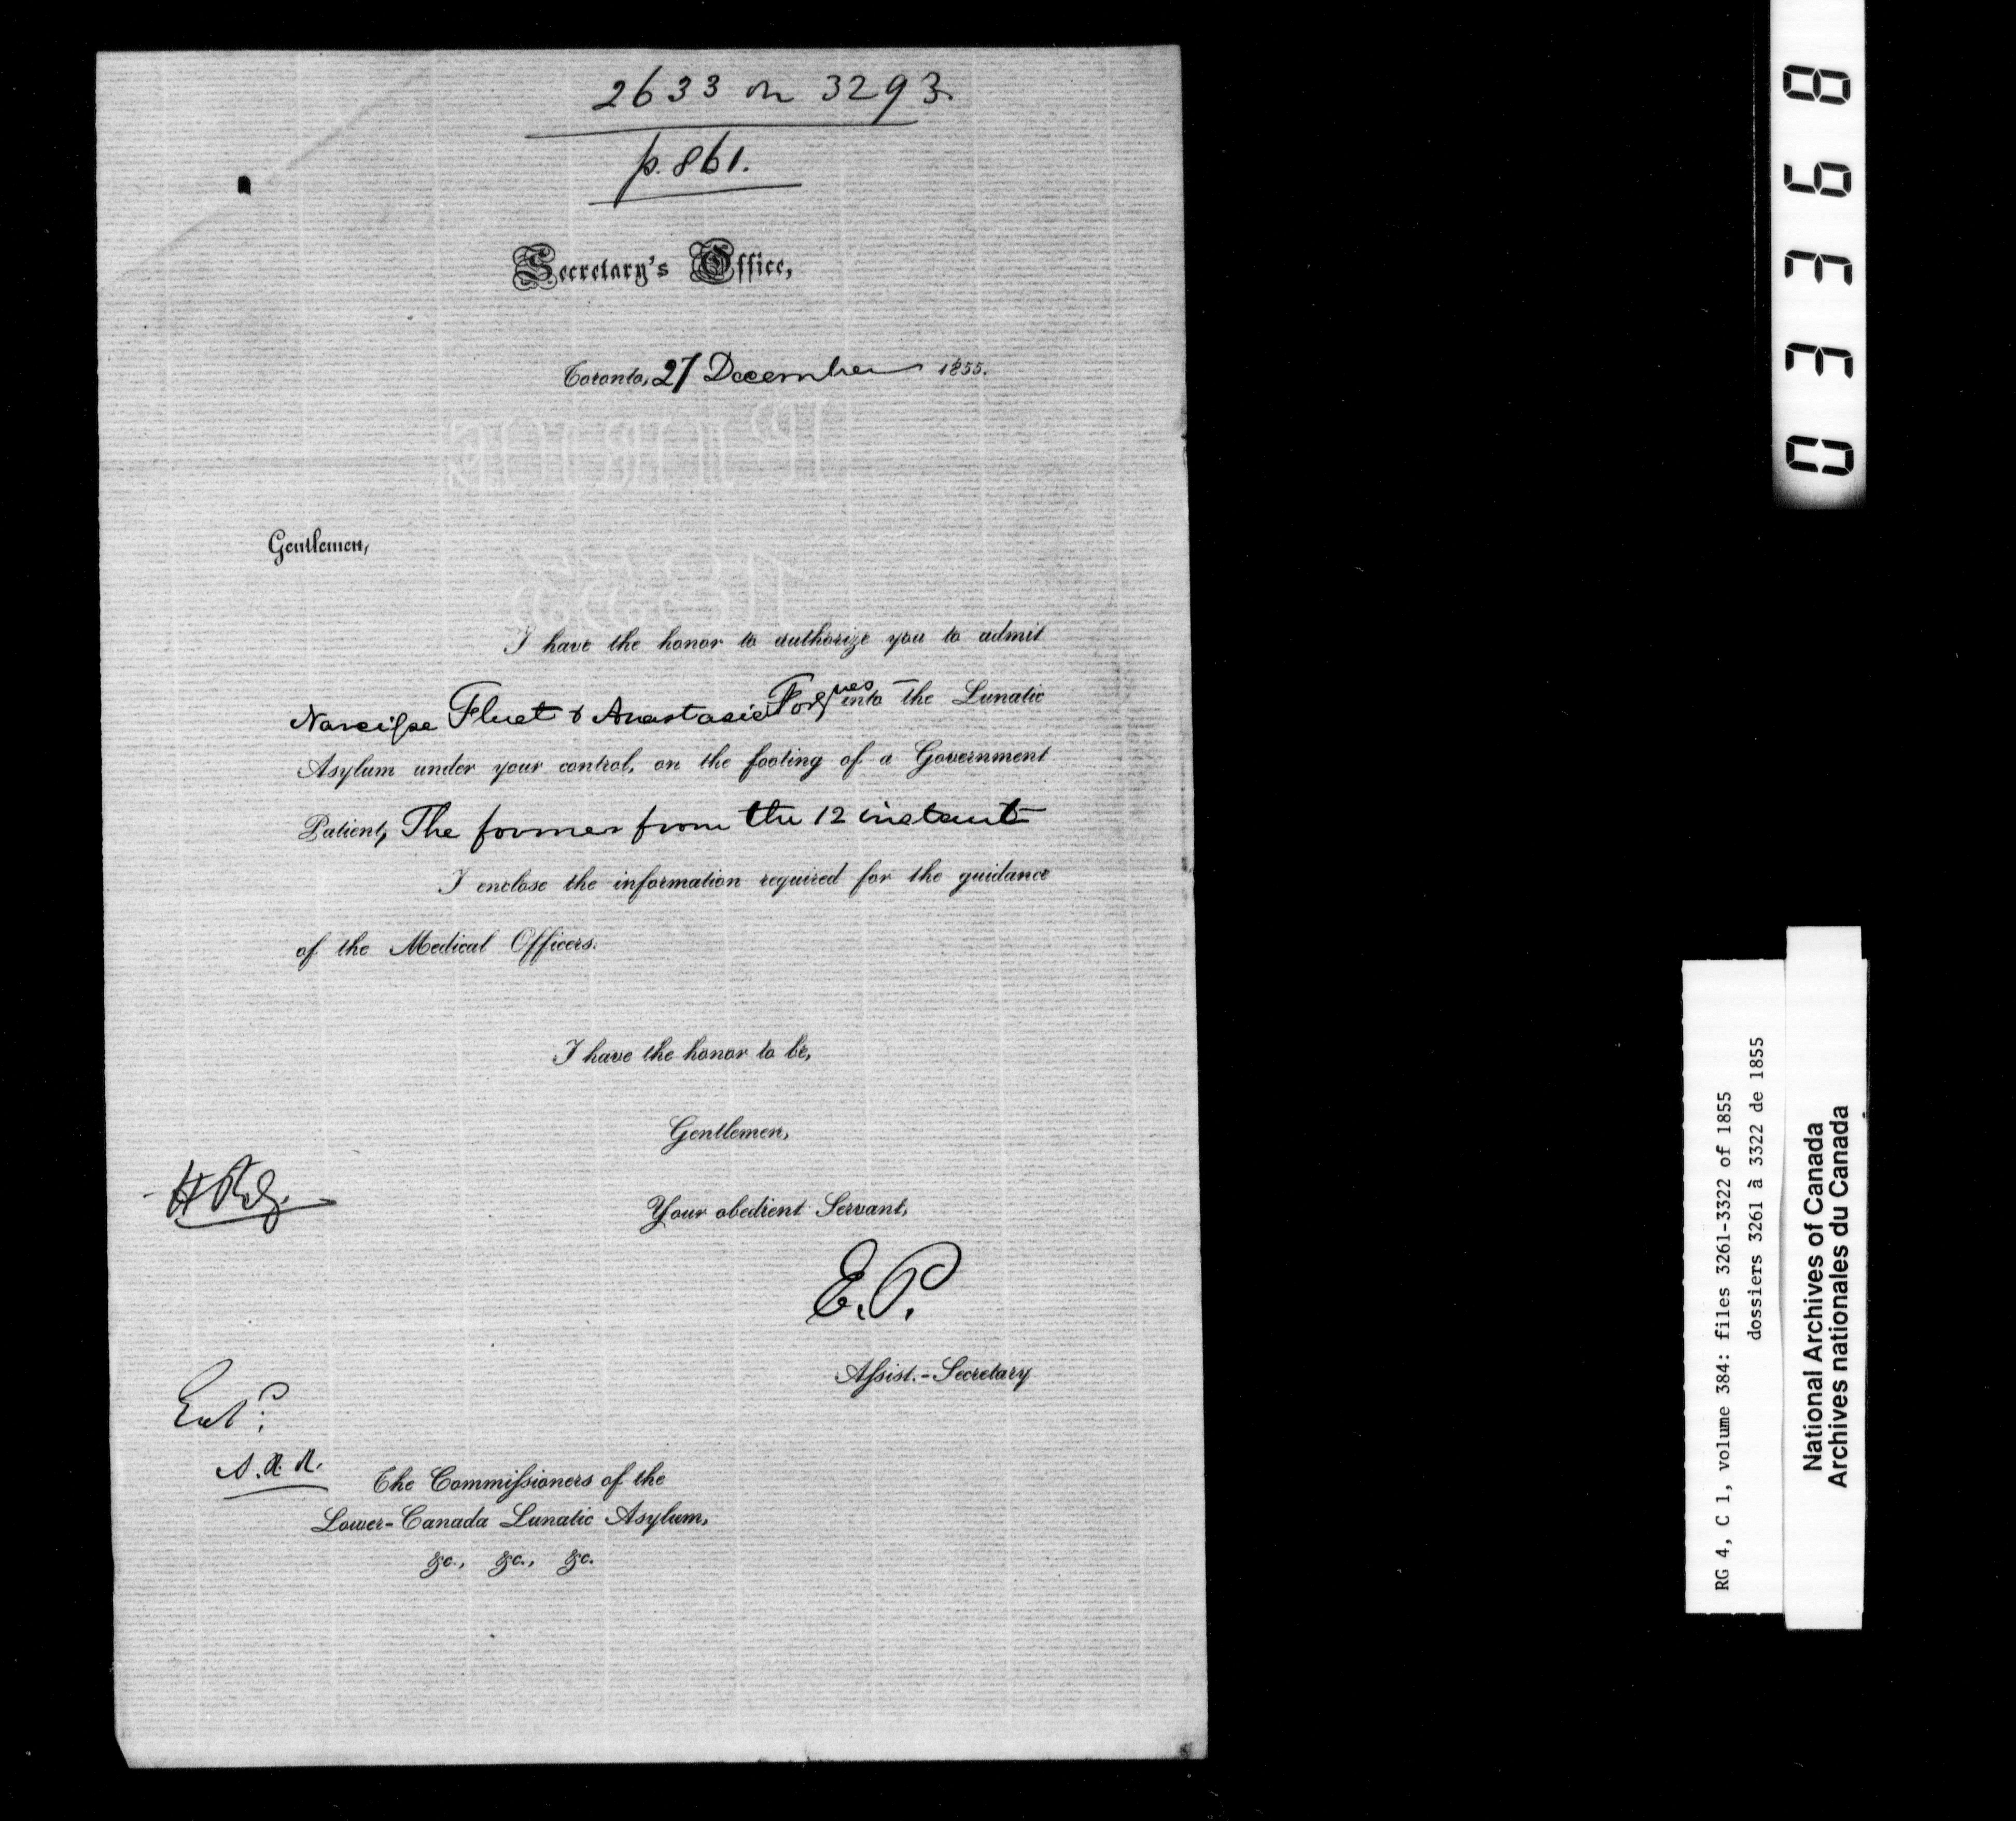 2633 on 3293
p. 861.
Secretary's Office,
Toronto, 27 December 1855.
Gentlemen,
I have the honor to authorize you to admit
Narcisse Fluet & Anastasie Forgues into the Lunatic
Asylum under your control, on the footing of a Government
Patient, The former from the 12 instant
I enclose the information required for the guidance
of the Medical Officers.
I have the honor to be,
Gentlemen,
Your obedient Servant,
E.P.
Assist.-Secretary
Entd.
The Commissioners of the
Lower-Canada Lunatic Asylum,
&c., &c., &c.
03368
RG 4, C 1, volume 384: files 3261-3322 of 1855
dossiers 3261 à 3322 de 1855
National Archives of Canada
Archives nationales du Canada